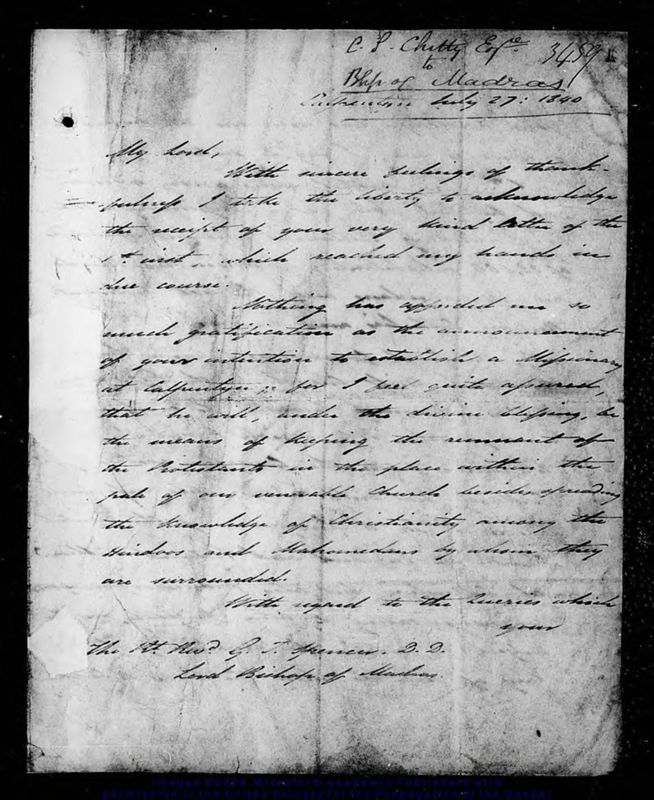 C. S. Chitty Esqre 3459
to
Bhp of Madras
Calpentyn July 27: 1840
My Lord,
With sincere feelings of thank-
fulness I take the liberty to acknowledge
the receipt of your very kind letter of the
inst, which reached my hands in
due course.
Nothing has afforded me so
much gratification as the announcement
of your intention to establish a Missionary
at Calpentyn; for I feel quite assured,
that he will, under the divine blessing, be
the means of keeping the remnant of
the Protestants in the place within the
pale of our venerable Church besides spreading
the knowledge of Christianity among the
Hindoos and Mahomedans by whom they
are surrounded.
With regard to the Queries which
your
The Rt. Revd G. T. Spencer. D.D.
Lord Bishop of Madras